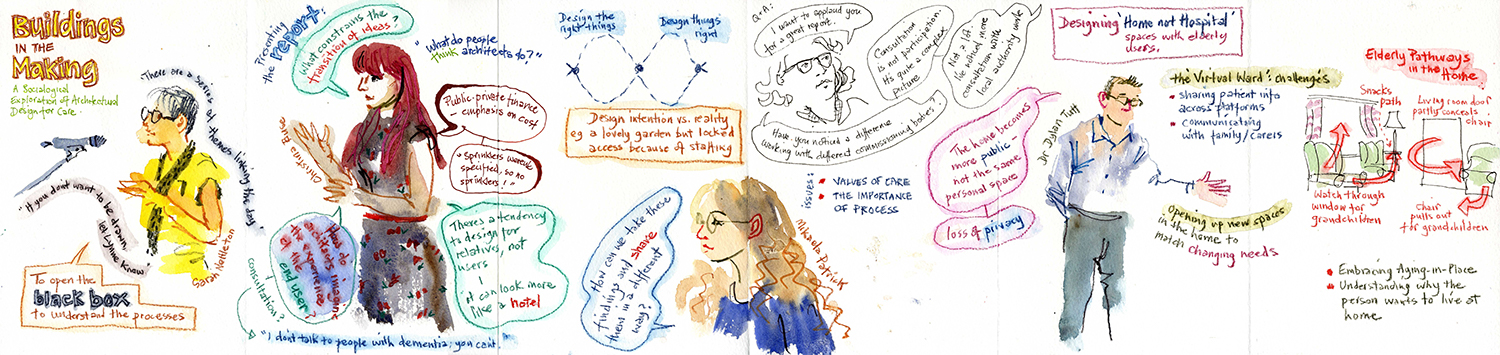 Buildings
IN THE
Making
A Sociological
Exploration of Architectural
Design for Care.
There are a series of themes linking the day.
"If you don't want to be drawn,
let Lynne know"
Sarah Nettleton
To open the
black box
to understand the processes
Presenting
the report:
What constrains the
transition of ideas?
"What do people
think architects do?"
Public-private finance
- emphasis on cost
"Sprinklers weren't
specified, so no
sprinklers!"
Christina Buse
How do
architects imagine
the experiences
of the
end user?
consultation?
There's a tendency
to design for
relatives, not
users
it can look more
like a hotel
"I don't talk to people with dementia; you can't."
Design the
right things
Design things
right
Design intention vs. reality
eg a lovely garden but locked
access because of staffing
How can we take these
findings and share
them in a different
way?
Mikaela Patrick
Q+A:
I want to applaud you
for a great report.
Consultation
is not participation.
It's quite a complex
picture.
Not a lot
like
consultation while
local authority work
Have you noticed a difference
working with different commissioning bodies?
issues:
VALUES OF CARE
THE IMPORTANCE
OF PROCESS
The home becomes
more public -
not the same
personal space
loss of privacy
Designing 'Home not Hospital'
spaces with elderly
users.
Dr Dylan Tutt
the Virtual Ward: challenges
sharing patient info
across platforms
communicating
with family/carers
Opening up new spaces
in the home to
match changing needs
Elderly Pathways
in the Home
Snacks
path
Living room door
partly conceals
chair
Watch through
window for
grandchildren
Chair
pulls out
for grandchildren
Embracing Aging-in-Place
Understanding why the
person wants to live at
home